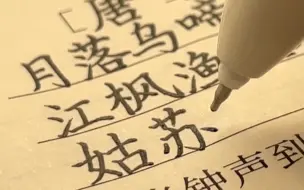 [唐
月落乌啼
江枫渔
姑苏
钟声到